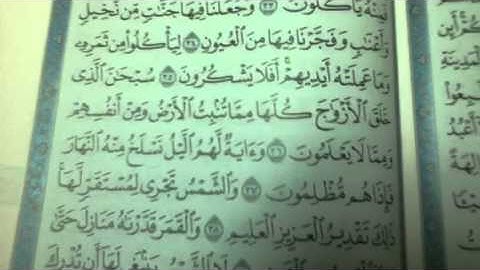 فَمِنْهُ يَأْكُلُونَ ٣٣ وَجَعَلْنَا فِيهَا جَنَّٰتٍ مِّن نَّخِيلٍ
وَأَعْنَٰبٍ وَفَجَّرْنَا فِيهَا مِنَ ٱلْعُيُونِ ٣٤ لِيَأْكُلُوا۟ مِن ثَمَرِهِۦ
وَمَا عَمِلَتْهُ أَيْدِيهِمْ ۖ أَفَلَا يَشْكُرُونَ ٣٥ سُبْحَٰنَ ٱلَّذِى
خَلَقَ ٱلْأَزْوَٰجَ كُلَّهَا مِمَّا تُنۢبِتُ ٱلْأَرْضُ وَمِنْ أَنفُسِهِمْ
وَمِمَّا لَا يَعْلَمُونَ ٣٦ وَءَايَةٌ لَّهُمُ ٱلَّيْلُ نَسْلَخُ مِنْهُ ٱلنَّهَارَ
فَإِذَا هُم مُّظْلِمُونَ ٣٧ وَٱلشَّمْسُ تَجْرِى لِمُسْتَقَرٍّ لَّهَا ۚ
ذَٰلِكَ تَقْدِيرُ ٱلْعَزِيزِ ٱلْعَلِيمِ ٣٨ وَٱلْقَمَرَ قَدَّرْنَٰهُ مَنَازِلَ حَتَّىٰ
لَا ٱلشَّمْسُ يَنۢبَغِى لَهَآ أَن تُدْرِكَ